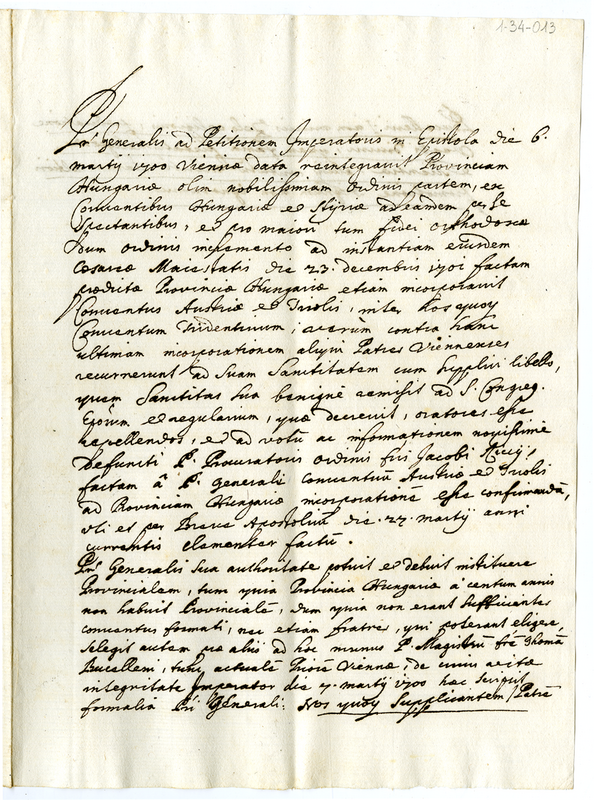 1-34-013
Pr̃ Generalis ad Petitionem Imperatoris in Epistola die 6.
martij 1700 Viennæ data reintegravit Provinciam
Hungariæ olim nobilissimam ordinis partem, ex
Conventibus Hungariæ et Stÿriæ ad eamdem per se
spectantibus, et pro maiori tum fidei orthodoxæ
dum ordinis incremento ad instantiam eiusdem
Cæsareæ Maiestatis die 23. decembris 1701 factam
prædictæ Provinciæ Hungariæ etiam incorporavit
Conventus Austriæ et Tirolis, inter hos quoq
Conventum Tridentinum; verum contra hanc
ultimam incorporationem aliqui Patres Viennenses
recurrerunt ad Suam Sanctitatem cum supplici libello,
quem Sanctitas sua benigne remisit ad S. Congreg.
Epõrum et regularium, quæ decrevit, oratores esse
repellendos, et ad votũ ac informationem novissime
defuncti P. Procuratoris ordinis fris Jacobi
factam à P. generali conventuũ Austriæ et Tirolis
ad Provinciam Hungariæ incorporationẽ esse confirmandã,
uti et per Breve Apostolicũ die 27. martij anni
currentis clementer factũ.
Pr̃ Generalis sua authoritate potuit et debuit instituere
Provincialem, tum quia Provincia Hungariæ à centum annis
non habuit Provincialẽ, dum quia non erant sufficientes
conventus formati, nec etiam fratres, qui poterant eligere,
selegit autem præ alijs ad hoc munus P. Magistrũ frẽ Thomã
Bucellem, tunc actualẽ Priorẽ Viennæ, de cuius vitæ
integritate Imperator die 7. martij 1700 hæc scripsit
formalia Pri Generali: Nos quoq supplicantem Patrẽ